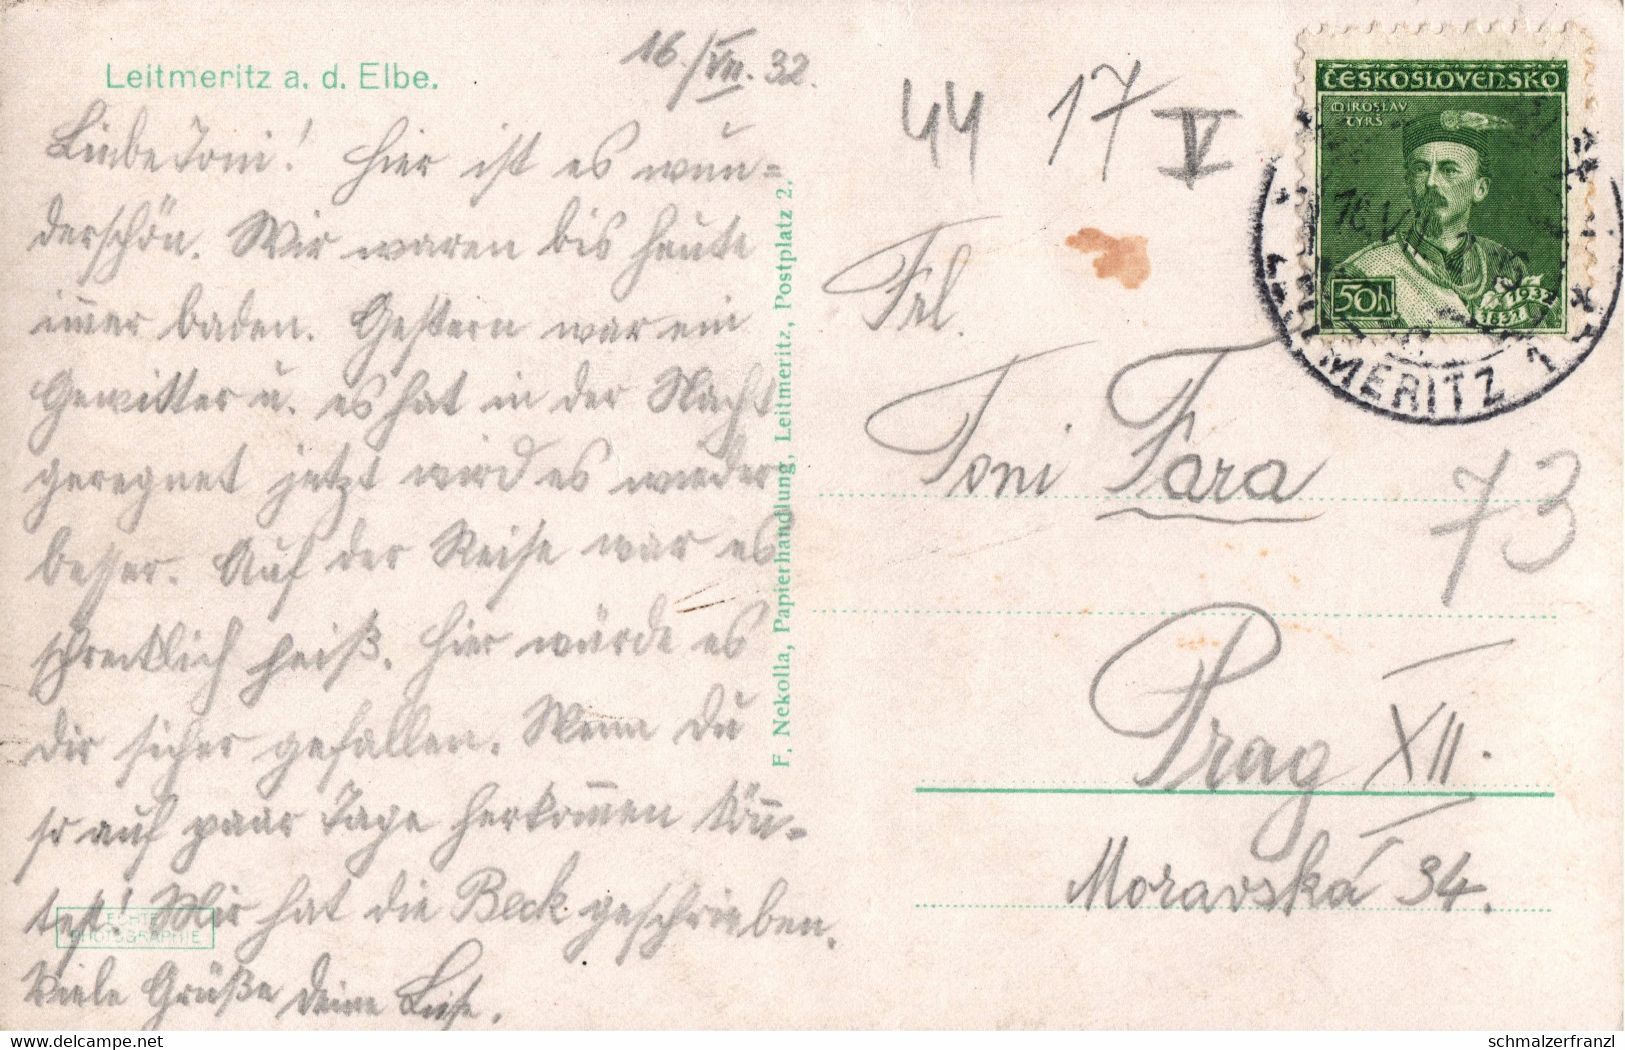 Leitmeritz a. d. Elbe.
16./VII. 32.
Liebe Toni! Hier ist es wun=
derschön. Wir waren bis heute
im̅er baden. Gestern war ein
Gewitter u. es hat in der Nacht
geregnet jetzt wird es wieder
besser. Auf der Reise war es
schrecklich heiß. Hier würde es
dir sicher gefallen. Wenn du
so auf paar Tage herkom̅en kön̅=
test! Mir hat die Beck geschrieben.
Viele Grüße deine Liese.
ECHTE
PHOTOGRAPHIE
F. Nekolla, Papierhandlung, Leitmeritz, Postplatz 2.
44 17 V
ČESKOSLOVENSKO
MIROSLAV
TYRŠ
50h
1932
1832
16.VII
LEITMERITZ 1
Frl.
Toni Fara
73
Prag XII.
Moravská 34.
schmalzerfranzl
www.delcampe.net